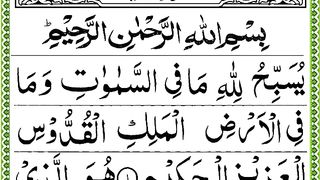 بِسْمِ اللهِ الرَّحْمٰنِ الرَّحِیْمِ
یُسَبِّحُ لِلّٰهِ مَا فِی السَّمٰوٰتِ وَمَا
فِی الْاَرْضِ الْمَلِكِ الْقُدُّوْسِ
الْعَزِیْزِ الْحَكِیْمِ ۝۱ هُوَ الَّذِیْ